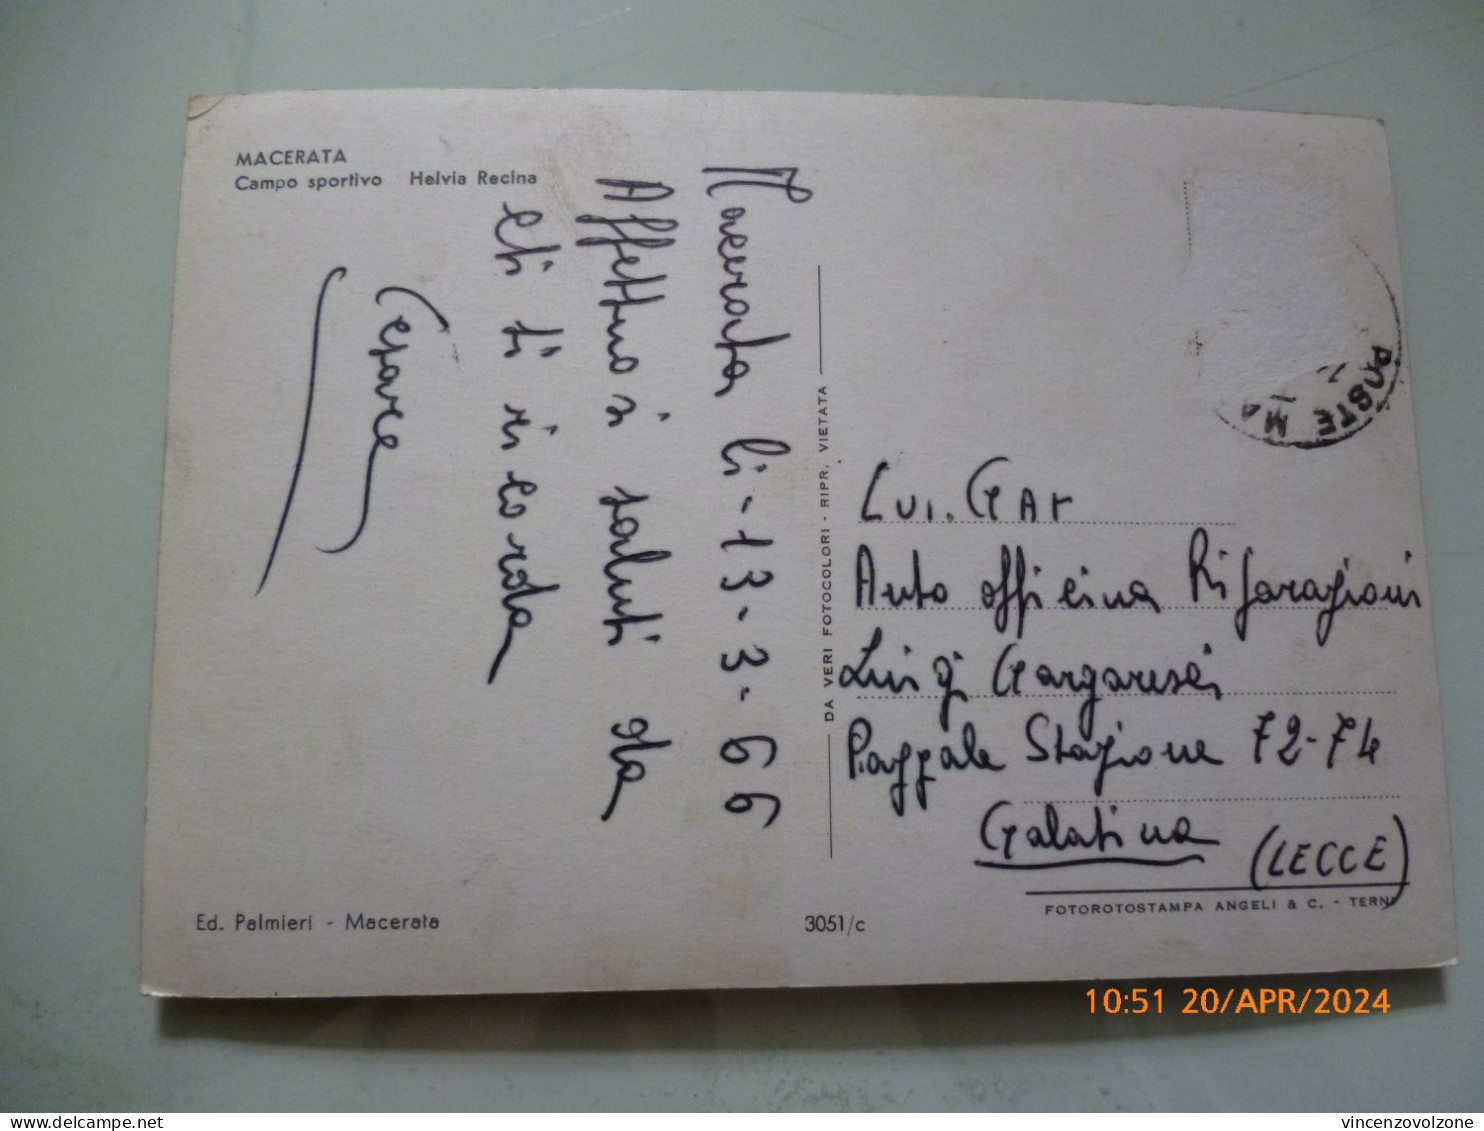 MACERATA
Campo sportivo Helvia Recina
Macerata li-13-3-66
Affettuosi saluti da
chi ti ricorda
Cesare
DA VERI FOTOCOLORI - RIPR. VIETATA
POSTE MA
Lui. Gar
Auto officina Riparazioni
Luigi Gargaresei
Piazzale Stazione 72-74
Galatina (LECCE)
FOTOROTOSTAMPA ANGELI & C. - TERNI
Ed. Palmieri - Macerata
3051/c
10:51 20/APR/2024
vincenzovolzone